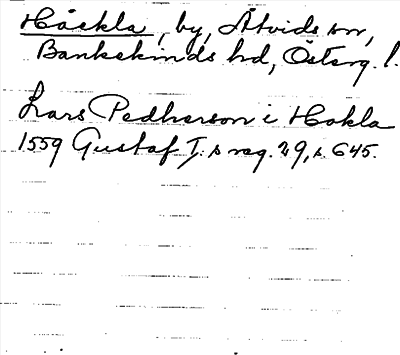 Håckla, by, Åtvids sn,
Bankekinds hd, Österg. l.
Lars Pedherson i Hokla
1559 Gustaf I:s reg. 29, s. 645.